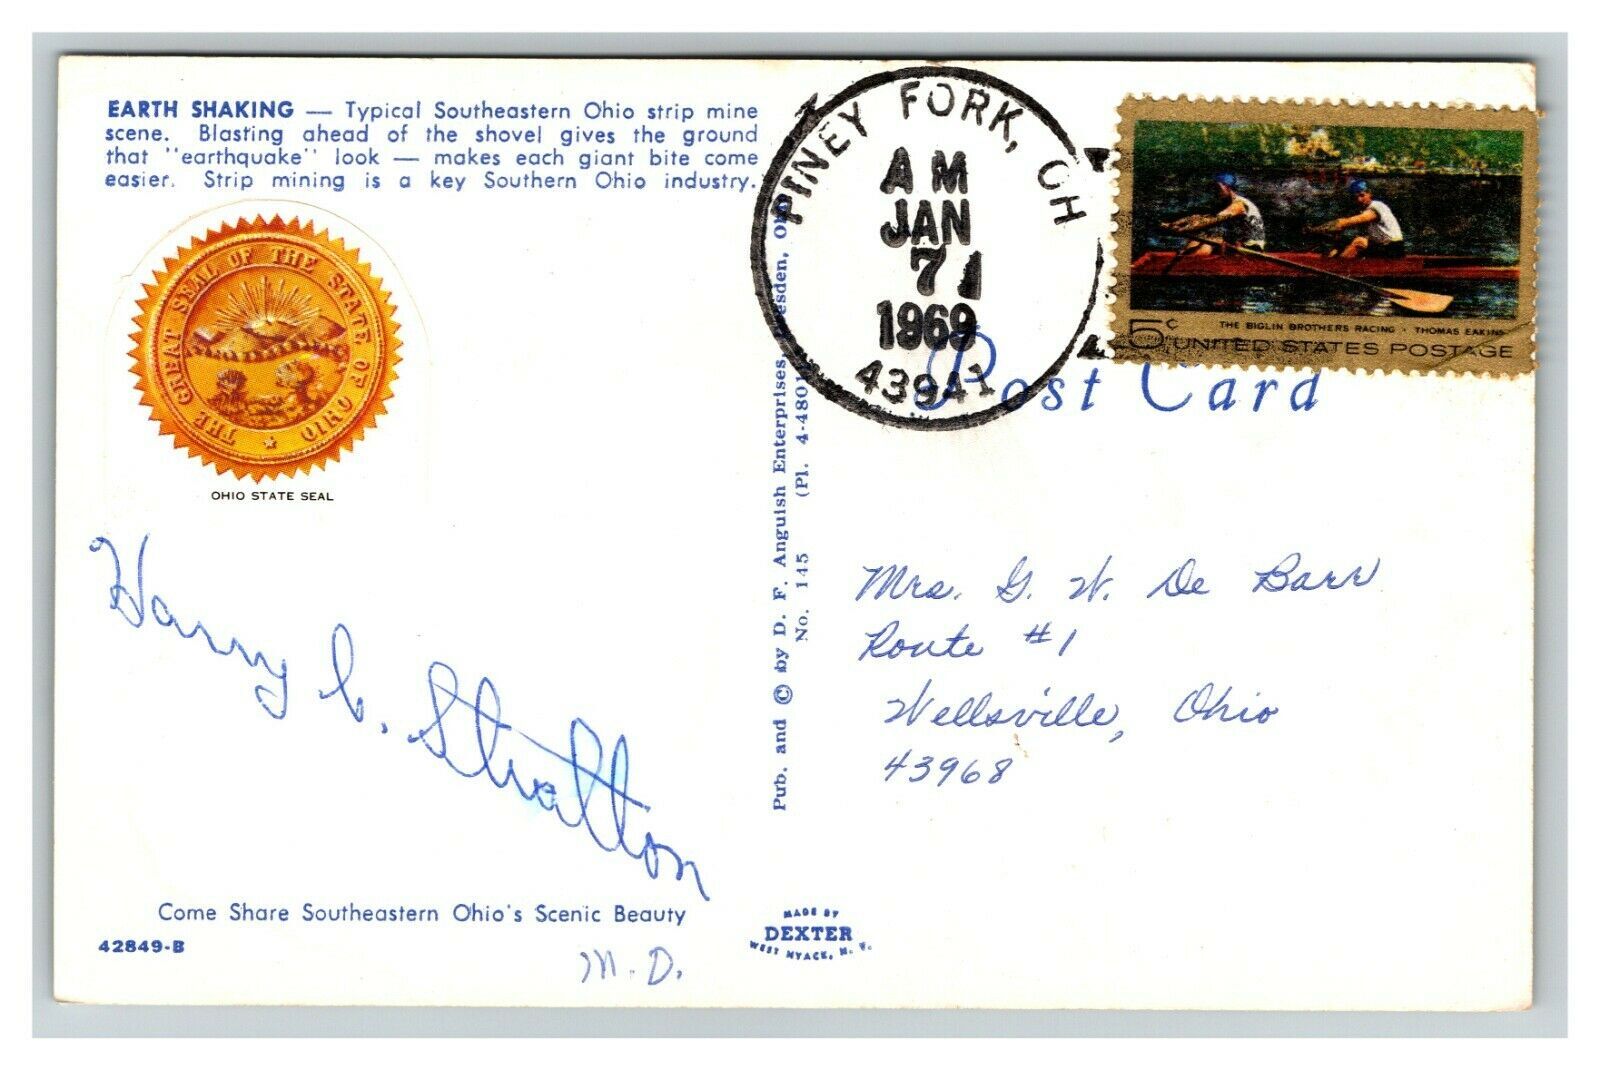 EARTH SHAKING — Typical Southeastern Ohio strip mine
scene. Blasting ahead of the shovel gives the ground
that "earthquake" look — makes each giant bite come
easier. Strip mining is a key Southern Ohio industry.
THE GREAT SEAL OF THE STATE OF OHIO
OHIO STATE SEAL
Harry C. Stratton
Come Share Southeastern Ohio's Scenic Beauty
42849-B
M.D.
Pub. and © by D. F. Anguish Enterprises, Dresden, Ohio
No. 145 (Pl. 4-4801)
MADE BY
DEXTER
WEST NYACK, N. Y.
PINEY FORK, OH
AM
JAN
7
1969
43941
THE BIGLIN BROTHERS RACING • THOMAS EAKINS
5c UNITED STATES POSTAGE
Post Card
Mrs. G. W. De Barr
Route #1
Wellsville, Ohio
43968